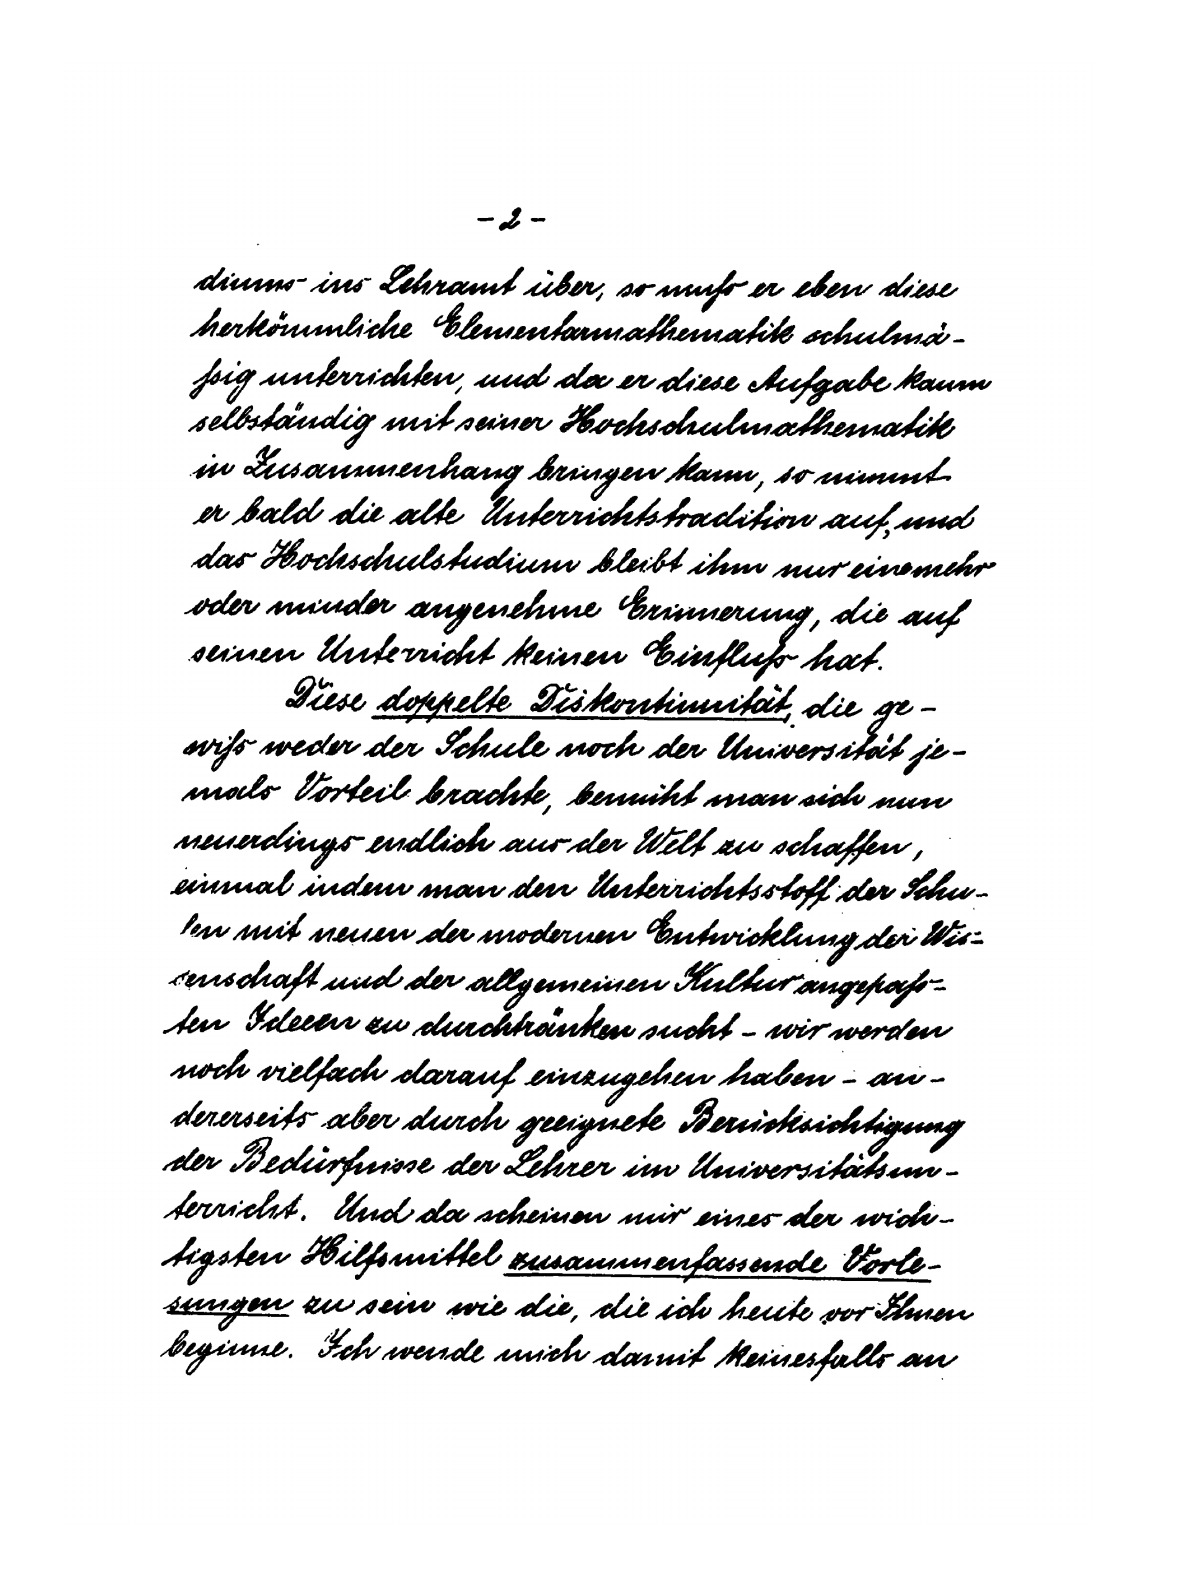 - 2 -
diums ins Lehramt über, so muß er eben diese
herkömmliche Elementarmathematik schulmä-
ßig unterrichten, und da er diese Aufgabe kaum
selbständig mit seiner Hochschulmathematik
in Zusammenhang bringen kann, so nimmt
er bald die alte Unterrichtstradition auf, und
das Hochschulstudium bleibt ihm nur eine mehr
oder minder angenehme Erinnerung, die auf
seinen Unterricht keinen Einfluß hat.
Diese doppelte Diskontinuität, die ge-
wiß weder der Schule noch der Universität je-
mals Vorteil brachte, bemüht man sich nun
neuerdings endlich aus der Welt zu schaffen,
einmal indem man den Unterrichtsstoff der Schu-
len mit neuen der modernen Entwicklung der Wis-
senschaft und der allgemeinen Kultur angepaß-
ten Ideeen zu durchtränken sucht - wir werden
noch vielfach darauf einzugehen haben - an-
dererseits aber durch geeignete Berücksichtigung
der Bedürfnisse der Lehrer im Universitätsun-
terricht. Und da scheinen mir eines der wich-
tigsten Hilfsmittel zusammenfassende Vorle-
sungen zu sein wie die, die ich heute vor Ihnen
beginne. Ich wende mich damit keinesfalls an